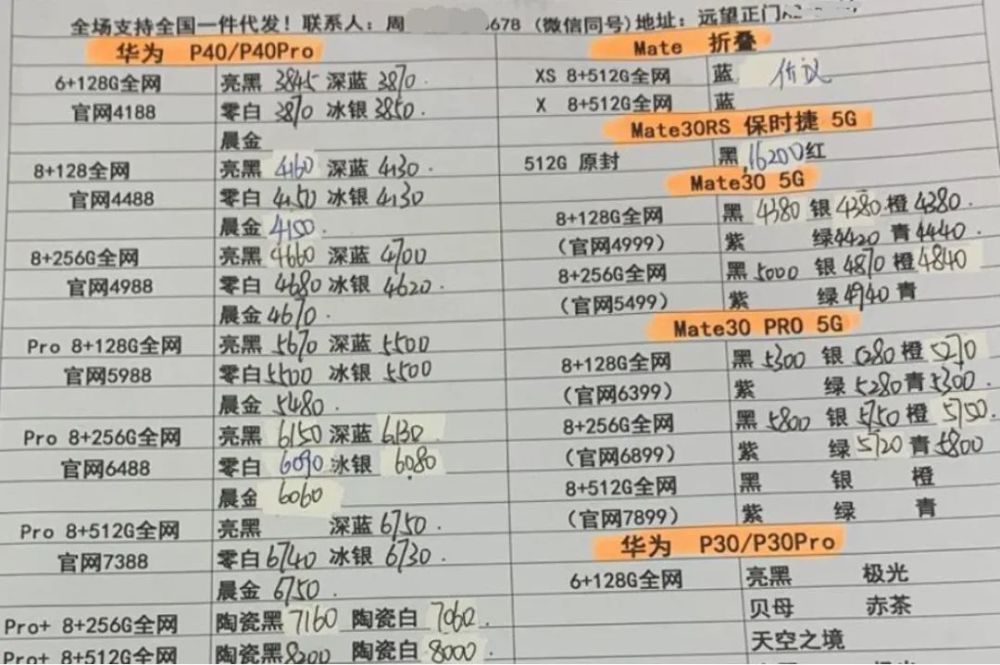 全场支持全国一件代发！联系人：周 5678（微信同号）地址：远望正门
华为 P40/P40Pro
6+128G全网 亮黑 3845 深蓝 3870.
官网4188 零白 3870 冰银 3850.
晨金
8+128G全网 亮黑 4160 深蓝 4130.
官网4488 零白 4150 冰银 4130
晨金 4150.
8+256G全网 亮黑 4660 深蓝 4700
官网4988 零白 4680 冰银 4620.
晨金 4670.
Pro 8+128G全网 亮黑 5670 深蓝 5500
官网5988 零白 5500 冰银 5500
晨金 5480.
Pro 8+256G全网 亮黑 6150 深蓝 6130
官网6488 零白 6090 冰银 6080
晨金 6060
Pro 8+512G全网 亮黑 深蓝 6750.
官网7388 零白 6740 冰银 6730.
晨金 6750
Pro+ 8+256G全网 陶瓷黑 7160 陶瓷白 7060.
Pro+ 8+512G全网 陶瓷黑 8200 陶瓷白 8000.
Mate 折叠
XS 8+512G全网 蓝 价议
X 8+512G全网 蓝
Mate30RS 保时捷 5G
512G 原封 黑 16200 红
Mate30 5G
8+128G全网 黑 4380 银 4380. 橙 4380.
(官网4999) 紫 绿 4420 青 4440.
8+256G全网 黑 5000 银 4870 橙 4840
(官网5499) 紫 绿 4940 青
Mate30 PRO 5G
8+128G全网 黑 5300 银 5280 橙 5270
(官网6399) 紫 绿 5280 青 5300.
8+256G全网 黑 5800 银 5750 橙 5750.
(官网6899) 紫 绿 5720 青 5800
8+512G全网 黑 银 橙
(官网7899) 紫 绿 青
华为 P30/P30Pro
6+128G全网 亮黑 极光
贝母 赤茶
天空之境